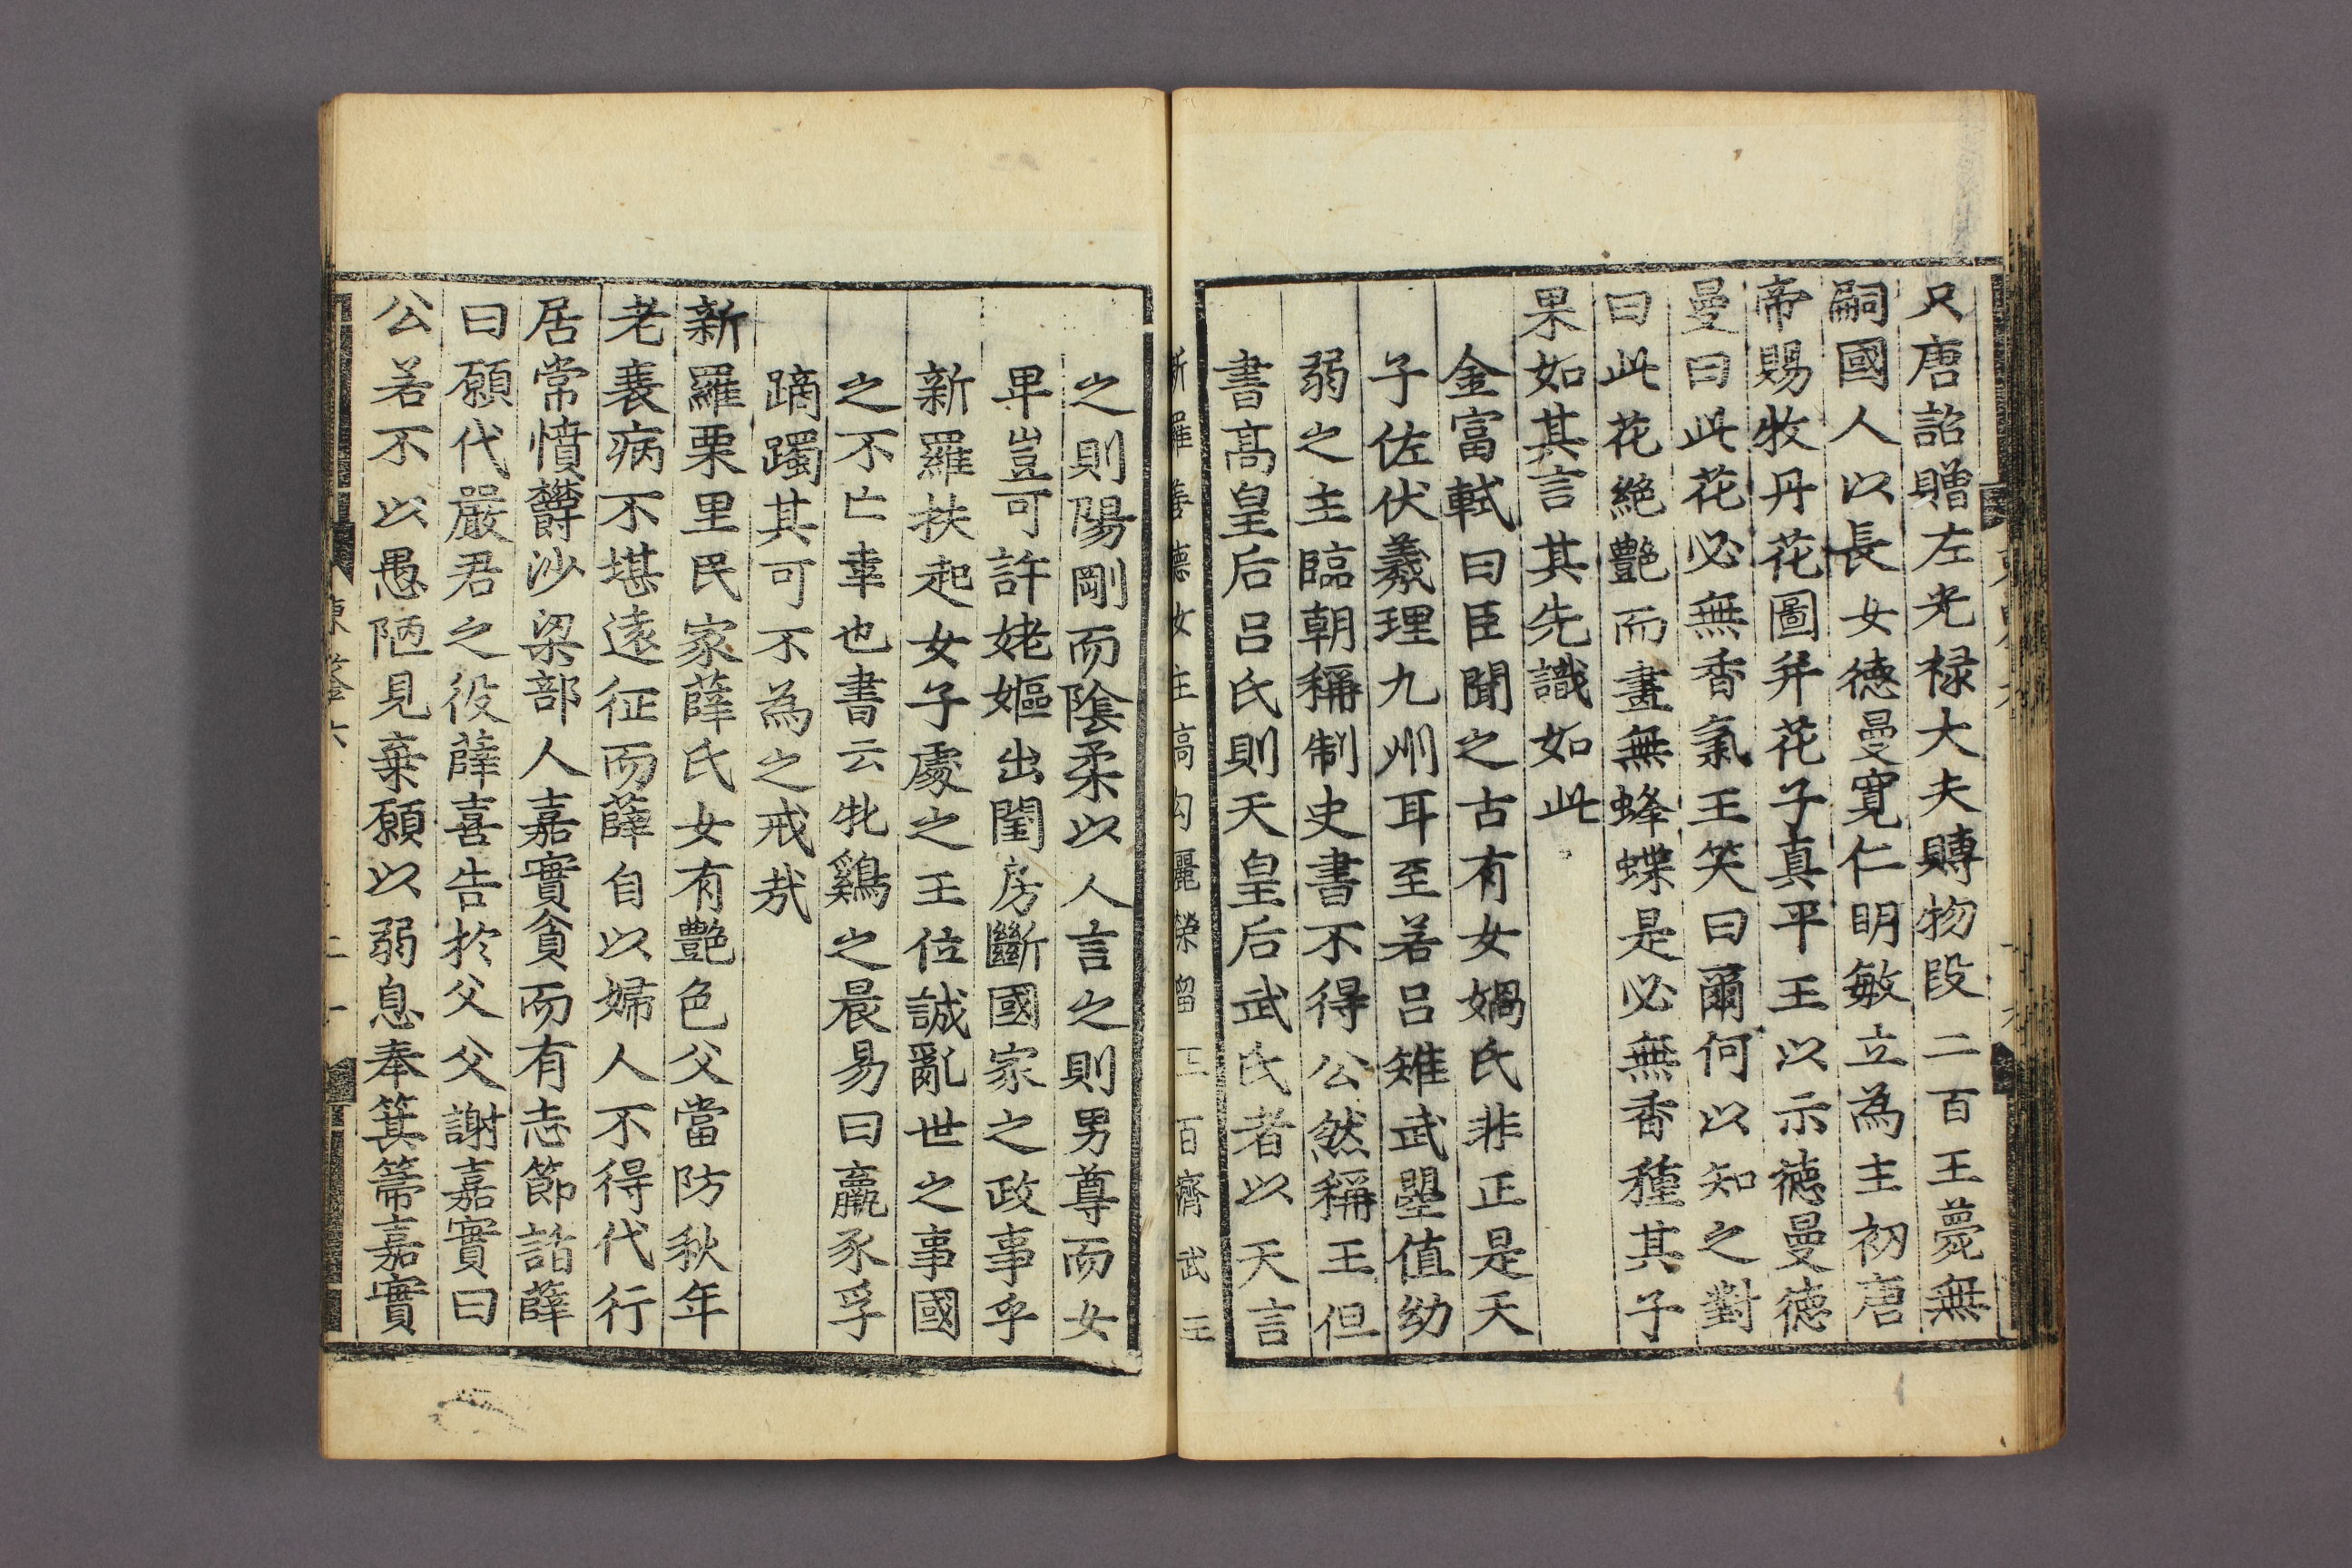 只唐詔贈左光禄大夫賻物段二百王薨無
嗣國人以長女德曼寛仁明敏立為主初唐
帝賜牧丹花圖并花子真平王以示德曼德
曼曰此花必無香氣王笑曰爾何以知之對
曰此花絶艶而畫無蜂蝶是必無香種其子
果如其言其先識如此
金富軾曰臣聞之古有女媧氏非正是天
子佐伏羲理九州耳至若呂雉武曌值幼
弱之主臨朝稱制史書不得公然稱王但
書高皇后呂氏則天皇后武氏者以天言
新羅善德女主高勾麗榮留王百濟武王
之則陽剛而陰柔以人言之則男尊而女
卑豈可許姥嫗出閨房斷國家之政事乎
新羅扶起女子處之王位誠亂世之事國
之不亡幸也書云牝鷄之晨易曰羸豕孚
蹢躅其可不為之戒㢤
新羅栗里民家薛氏女有艶色父當防秋年
老衰病不堪遠征而薛自以婦人不得代行
居常憤欝沙梁部人嘉實貧而有志節詣薛
曰願代嚴君之役薛喜告於父父謝嘉實曰
公若不以愚陋見棄願以弱息奉箕箒嘉實